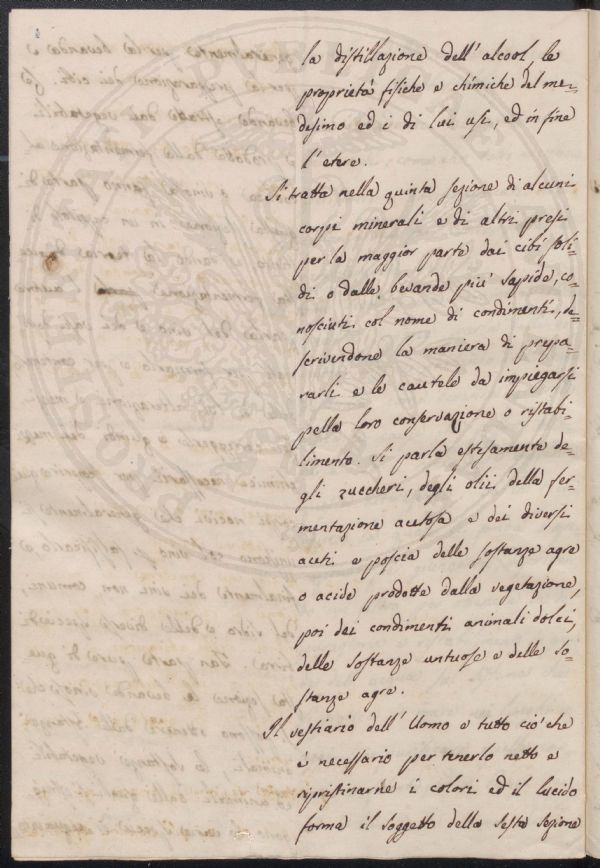 la distillazione dell' alcool, le
proprietà fisiche e chimiche del me-
desimo ed i di lui usi, ed in fine
l' etere.
Si tratta nella quinta sezione di alcuni
corpi minerali e di altri presi
per la maggior parte dai cibi soli-
di o dalle bevande più sapide, co-
nosciuti col nome di condimenti, de-
scrivendone la maniera di prepa-
rarli e le cautele da impiegarsi
pella loro conservazione o ristabi-
limento. Si parla estesamente de-
gli zuccheri, degli olii della fer-
mentazione acetosa e dei diversi
aceti e poscia delle sostanze agre
o acide prodotte dalla vegetazione,
poi dei condimenti animali dolci,
delle sostanze untuose e delle so-
stanze agre.
Il vestiario dell' Uomo e tutto ciò che
è necessario per tenerlo netto e
ripristinarne i colori ed il lucido
forma il soggetto della sesta sezione